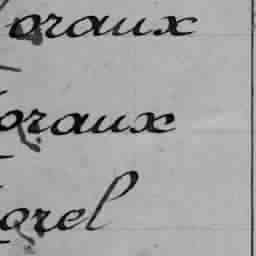 oraux
oraux
orel